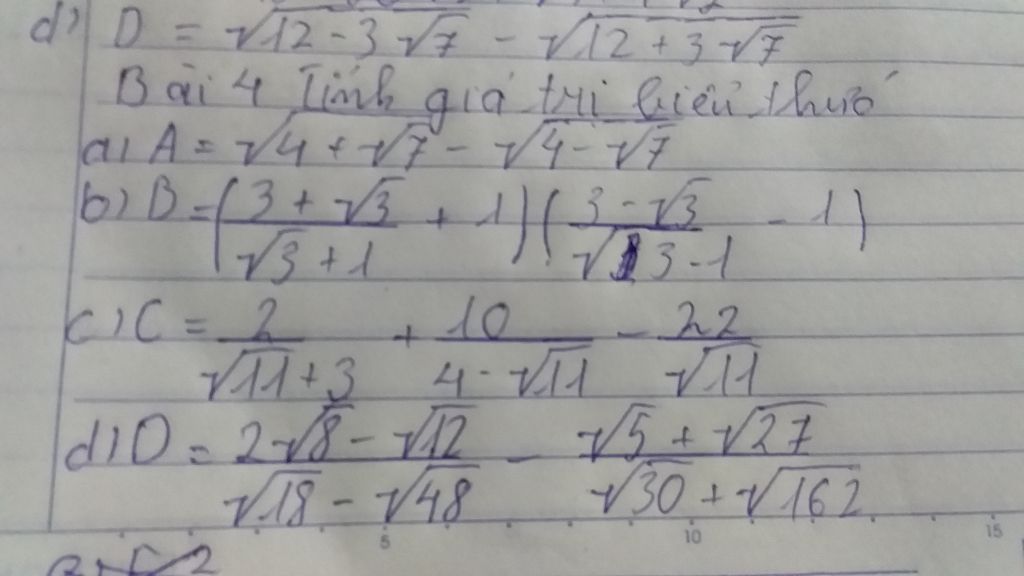 d) D = √(12 - 3√7) - √(12 + 3√7)
Bài 4 Tính giá trị biểu thức
a) A = √(4 + √7) - √(4 - √7)
b) B = ((3 + √3)/(√3 + 1) + 1)((3 - √3)/(√3 - 1) - 1)
c) C = 2/(√11 + 3) + 10/(4 - √11) - 22/√11
d) D = (2√8 - √12)/(√18 - √48) - (√5 + √27)/(√30 + √162)
5 10 15